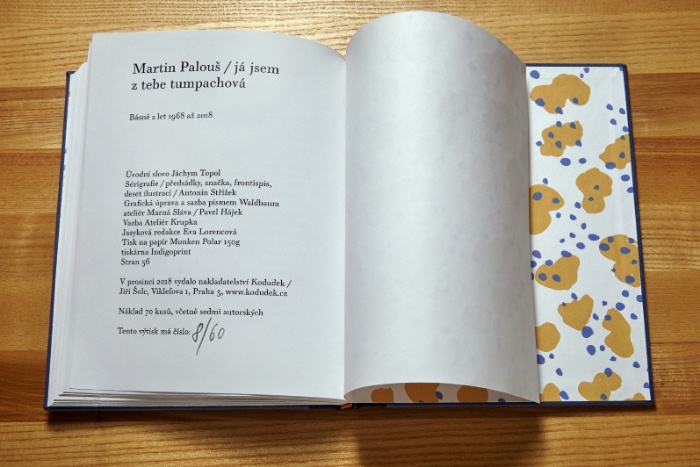 Martin Palouš / já jsem
z tebe tumpachová
Básně z let 1968 až 2018
Úvodní slovo Jáchym Topol
Sérigrafie / předsádky, značka, frontispis,
deset ilustrací / Antonín Střížek
Grafická úprava a sazba písmem Waldbaum
ateliér Marná Sláva / Pavel Hájek
Vazba Ateliér Krupka
Jazyková redakce Eva Lorencová
Tisk na papír Munken Polar 150g
tiskárna Indigoprint
Stran 56
V prosinci 2018 vydalo nakladatelství Kodudek /
Jiří Šolc, Viklefova 1, Praha 3, www.kodudek.cz
Náklad 70 kusů, včetně sedmi autorských
Tento výtisk má číslo: 8/60